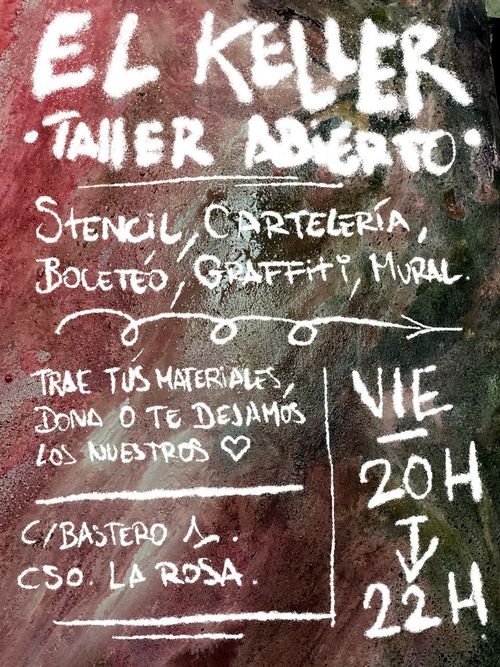 EL KELLER
·TALLER ABIERTO·
STENCIL, CARTELERÍA,
BOCETEO, GRAFFITI, MURAL.
TRAE TUS MATERIALES,
DONA O TE DEJAMOS
LOS NUESTROS ♡
C/BASTERO 1.
CSO. LA ROSA.
VIE
20H
↓
22H.